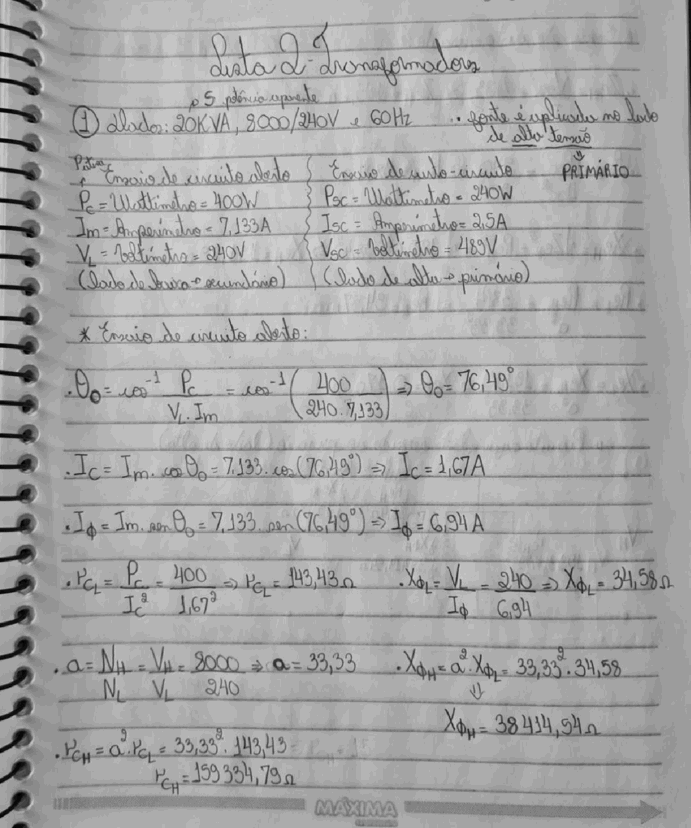 Lista 2 - Transformadores
→ S potência aparente
① dados: 20KVA, 8000/240V e 60Hz ∴ fonte é aplicada no lado de alta tensão
⇓
PRIMÁRIO
Ensaio de circuito aberto
Pc = Wattímetro = 400W
Im = Amperímetro = 7,133A
VL = Voltímetro = 240V
(lado de baixa → secundário)
Ensaio de curto-circuito
Psc = Wattímetro = 240W
Isc = Amperímetro = 2,5A
Vsc = Voltímetro = 489V
(lado de alta → primário)
* Ensaio de circuito aberto:
. θ₀ = cos⁻¹ Pc / VL . Im = cos⁻¹ (400 / 240 . 7,133) ⇒ θ₀ = 76,49°
. Ic = Im . cos θ₀ = 7,133 . cos(76,49°) ⇒ Ic = 1,67A
. Iϕ = Im . sen θ₀ = 7,133 . sen(76,49°) ⇒ Iϕ = 6,94 A
. rcL = Pc / Ic² = 400 / 1,67² ⇒ rcL = 143,43Ω . XϕL = VL / Iϕ = 240 / 6,94 ⇒ XϕL = 34,58Ω
. a = NH / NL = VH / VL = 8000 / 240 ⇒ a = 33,33 . XϕH = a² . XϕL = 33,33² . 34,58
⇓
XϕH = 38414,54Ω
. rcH = a² . rcL = 33,33² . 143,43
rcH = 159334,79Ω
MÁXIMA